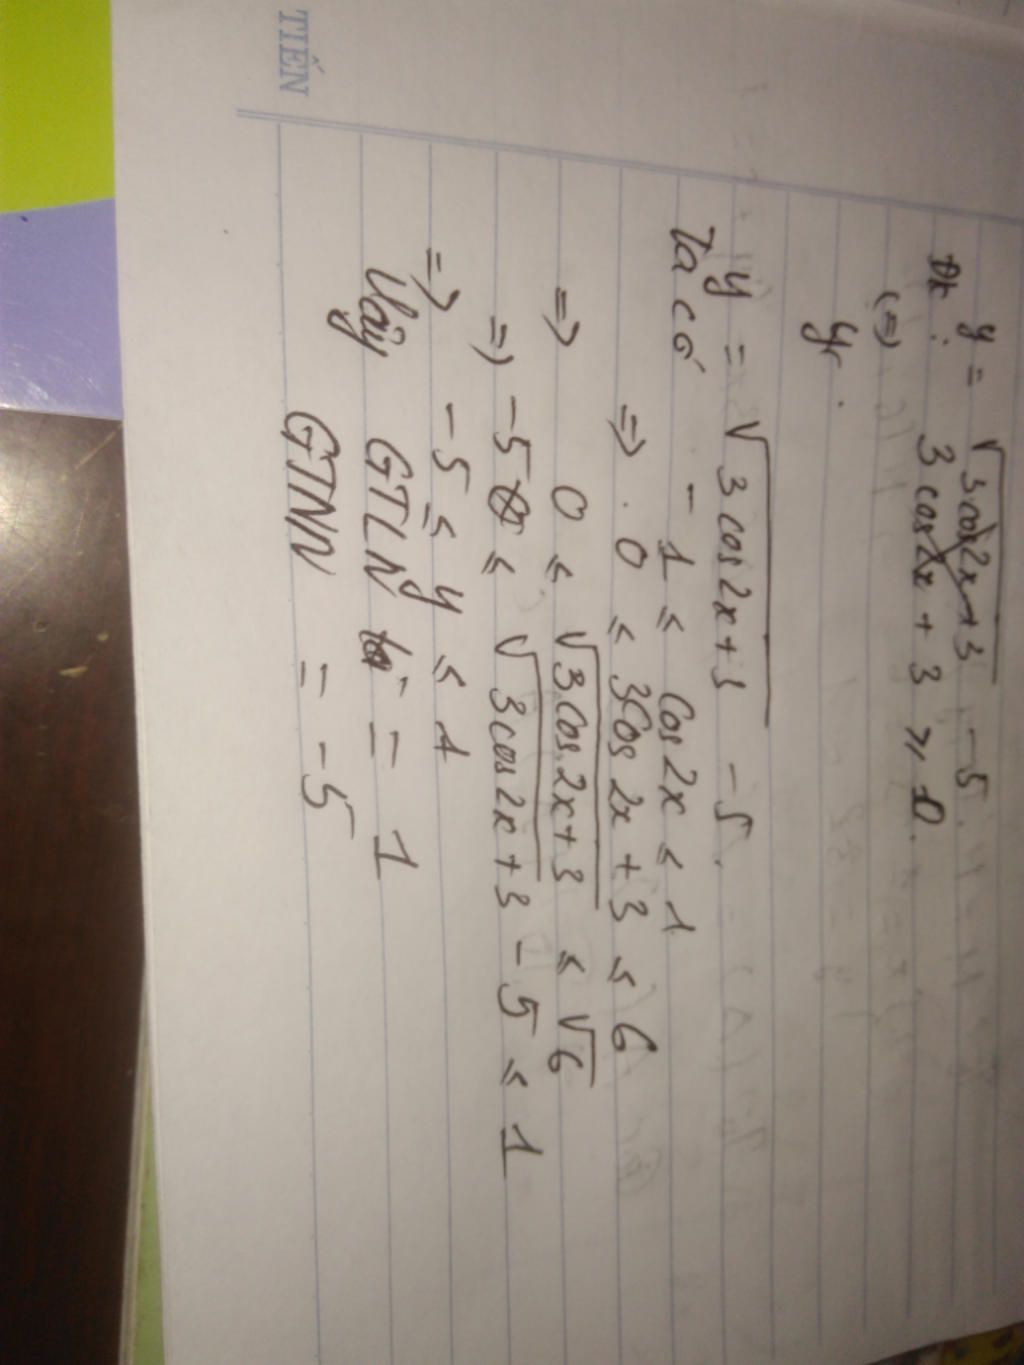 TIẾN
y = √3cos2x+3 - 5.
Đk: 3cos2x + 3 ≥ 0.
(=)
y = √3cos2x+3 - 5.
Ta có - 1 ≤ Cos2x ≤ 1
=> 0 ≤ 3Cos2x + 3 ≤ 6
=> 0 ≤ √3Cos2x+3 ≤ √6
=> -5 ≤ √3cos2x+3 - 5 ≤ 1
=> -5 ≤ y ≤ 1
Vậy GTLN = 1
GTNN = -5